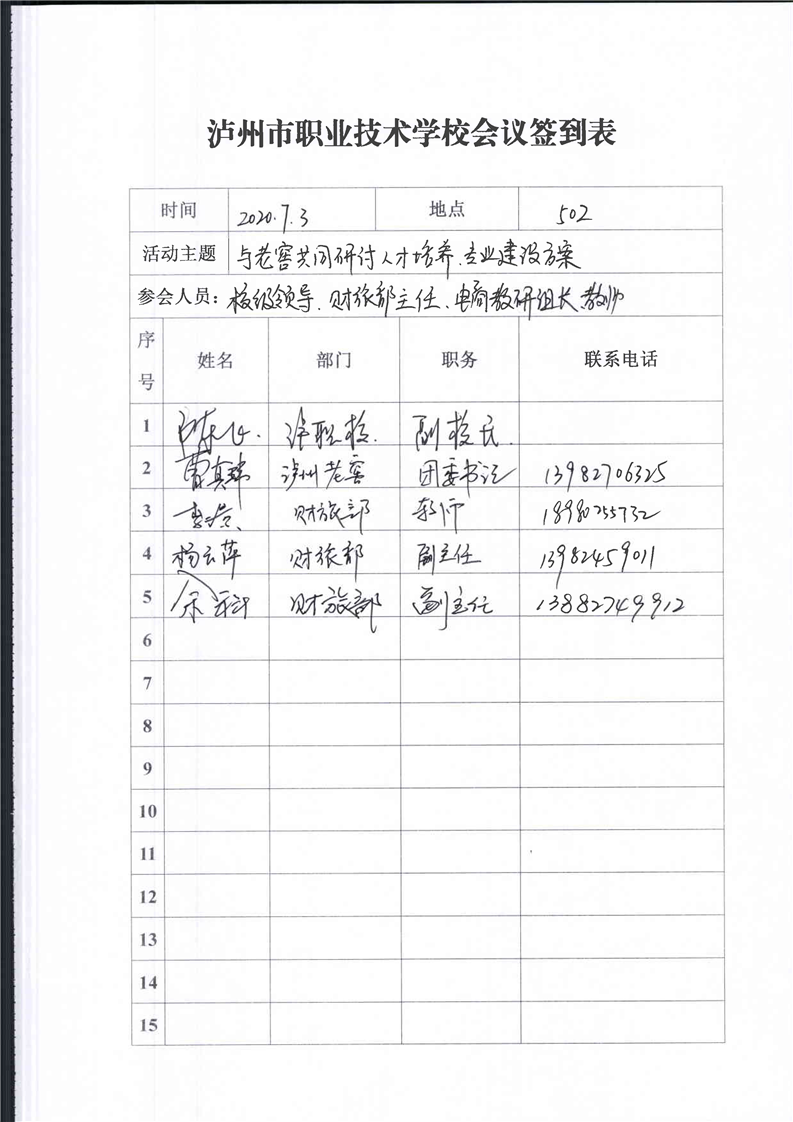 泸州市职业技术学校会议签到表
时间 2020.7.3 地点 502
活动主题 与老窖共同研讨人才培养、专业建设方案
参会人员：校级领导、财旅部主任、电商教研组长、教师
序号 姓名 部门 职务 联系电话
1 泸职校. 副校长.
2 曹真瑞 泸州老窖 团委书记 13982706325
3 财旅部 教师 18980255732
4 杨云萍 财旅部 副主任 13982459011
5 余科 财旅部 副主任 13882749912
6
7
8
9
10
11
12
13
14
15